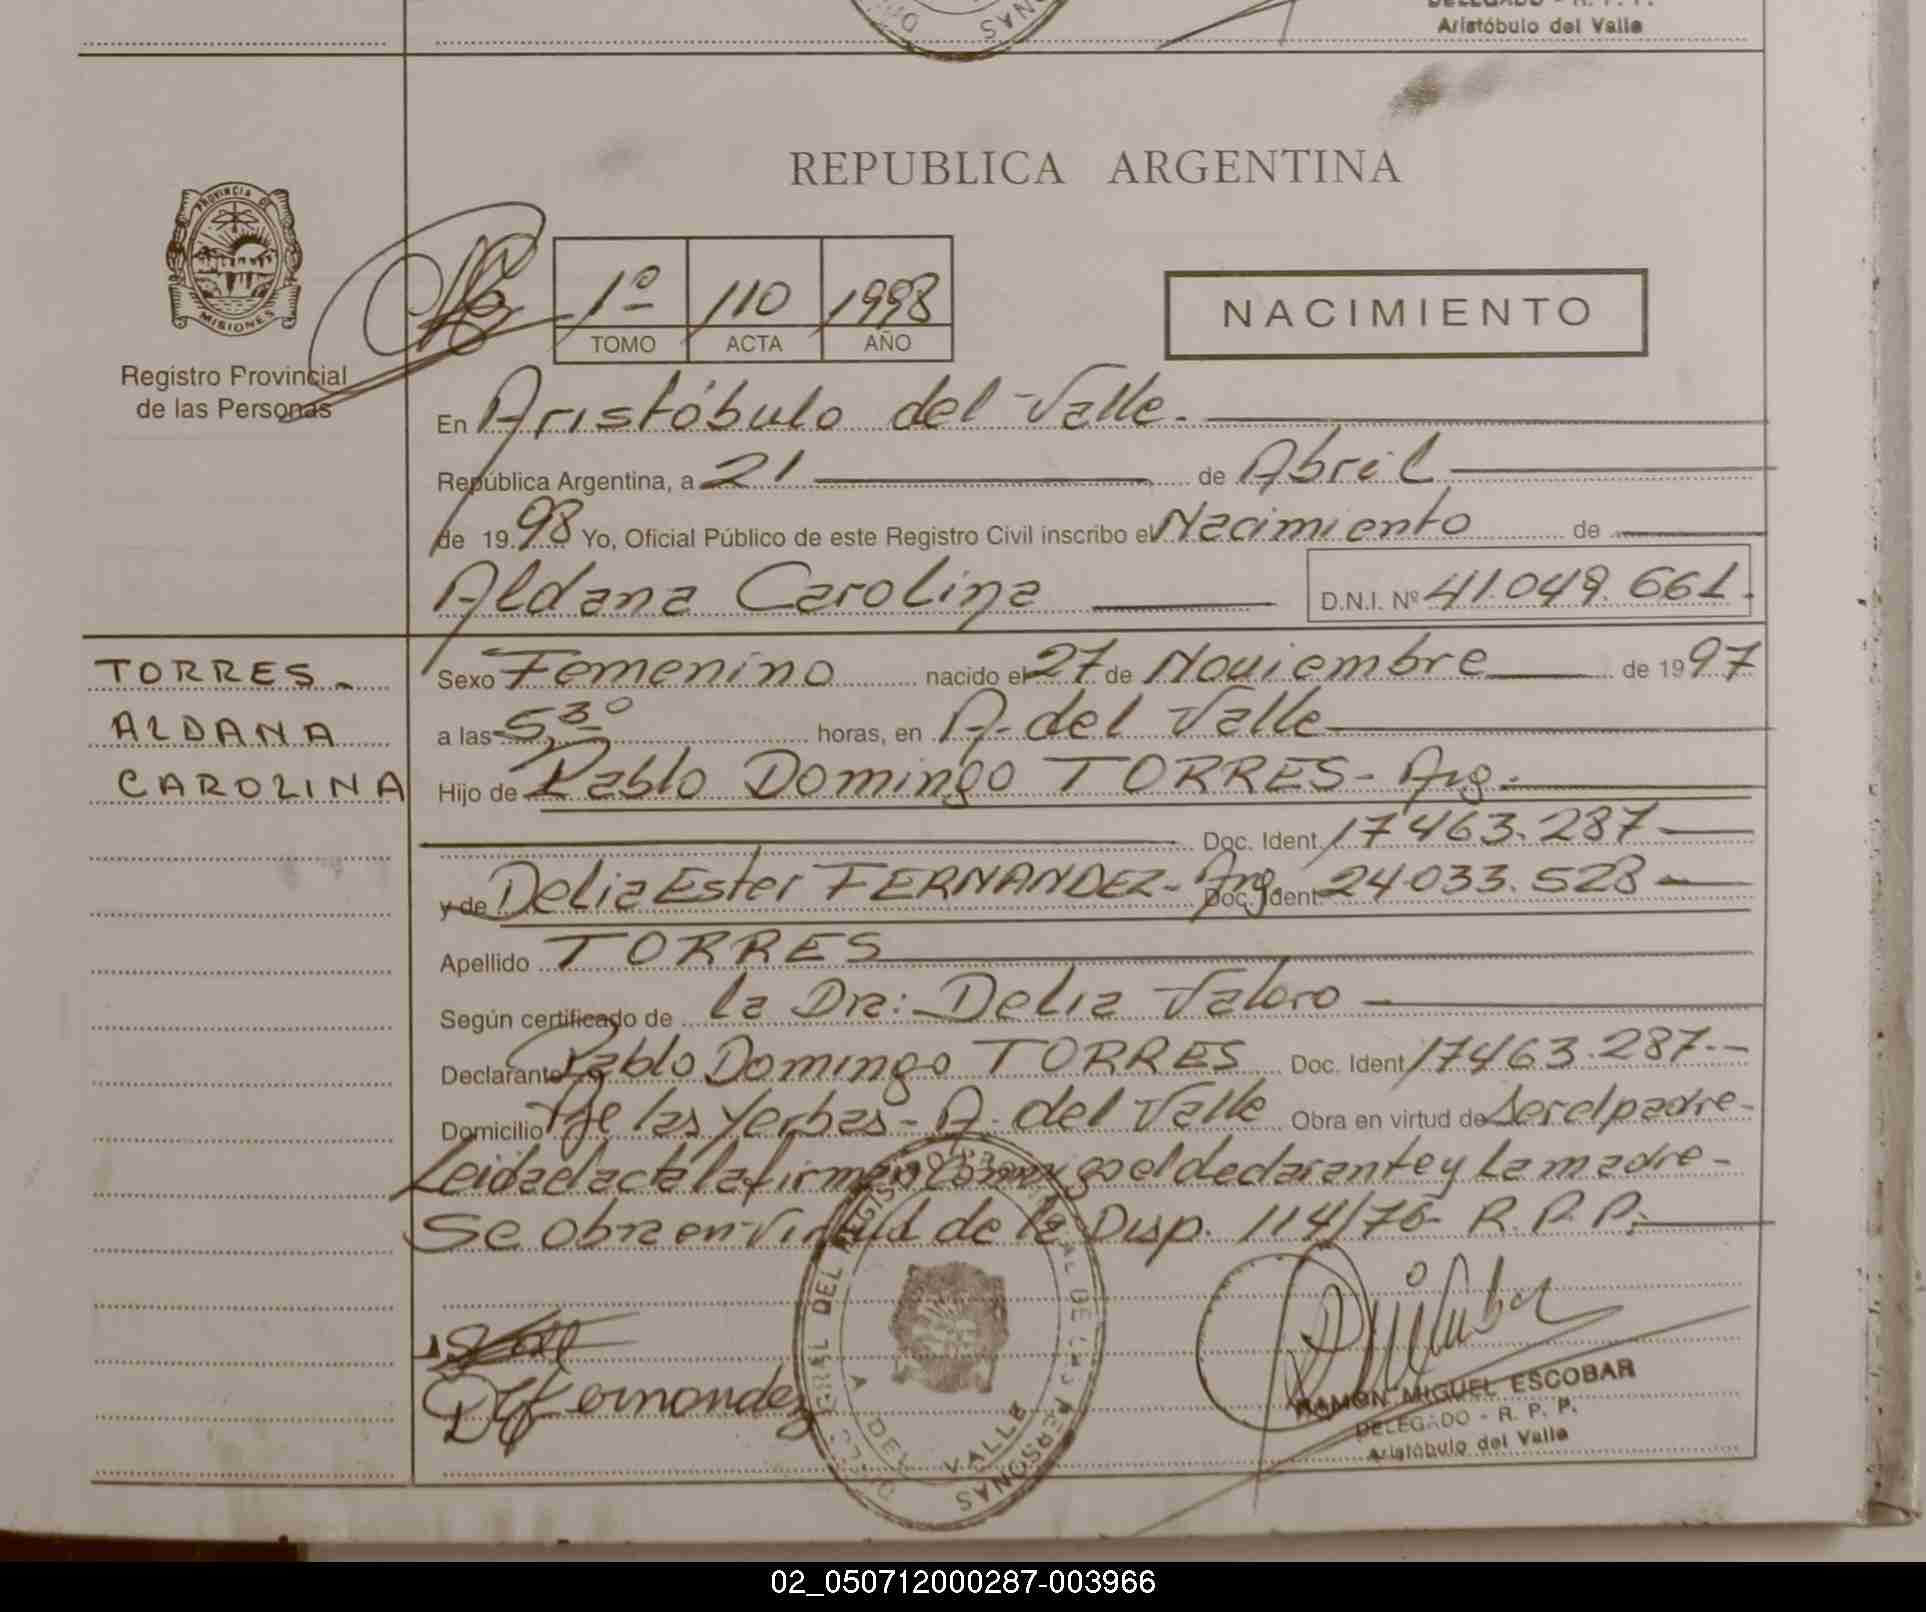 DELEGADO - R. P. P.
Aristóbulo del Valle
REPUBLICA ARGENTINA
PROVINCIA DE
MISIONES
Registro Provincial
de las Personas
1º 110 1998
TOMO ACTA AÑO
NACIMIENTO
En Aristóbulo del Valle.
República Argentina, a 21 de Abril
de 19 98 Yo, Oficial Público de este Registro Civil inscribo el Nacimiento de
Aldana Carolina D.N.I. Nº 41.049.661.
TORRES
ALDANA
CAROLINA
Sexo Femenino nacido el 27 de Noviembre de 19 97
a las 5,30 horas, en A. del Valle
Hijo de Pablo Domingo TORRES - Arg.
Doc. Ident. 17463.287
y de Delia Ester FERNANDEZ - Arg. Doc. Ident. 24033.528
Apellido TORRES
Según certificado de la Dra: Delia Valoro
Declarante Pablo Domingo TORRES Doc. Ident 17463.287.-
Domicilio Pje las Yerbas - A. del Valle Obra en virtud de Ser el padre-
Leida el acta la firman conmigo el declarante y La madre -
Se obra en virtud de la Disp. 114/76 R.P.P.
DEL REGISTRO PROVINCIAL DE LAS PERSONAS
A. DEL VALLE
D E Fernandez
RAMON MIGUEL ESCOBAR
DELEGADO - R. P. P.
Aristóbulo del Valle
02_050712000287-003966